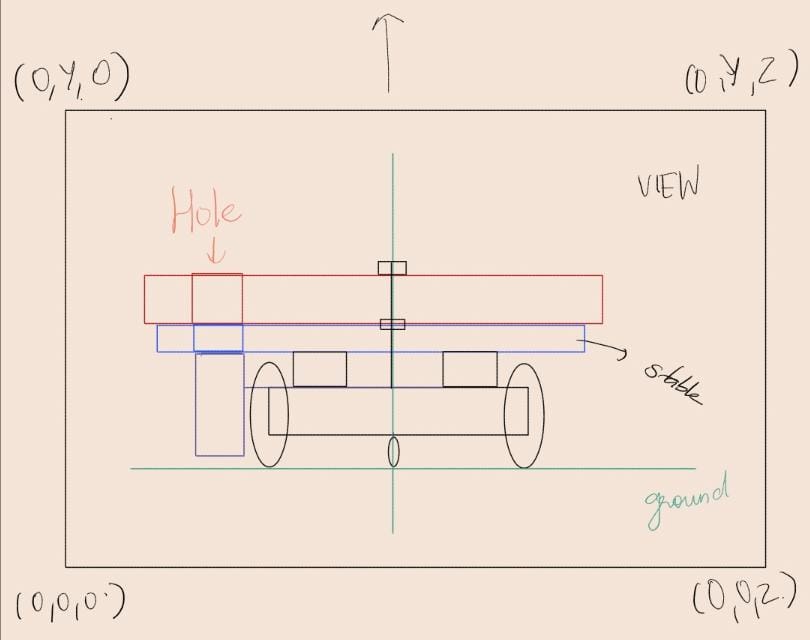 (0,Y,0)
(0,Y,Z)
VIEW
Hole
stable
ground
(0,0,0)
(0,0,Z)